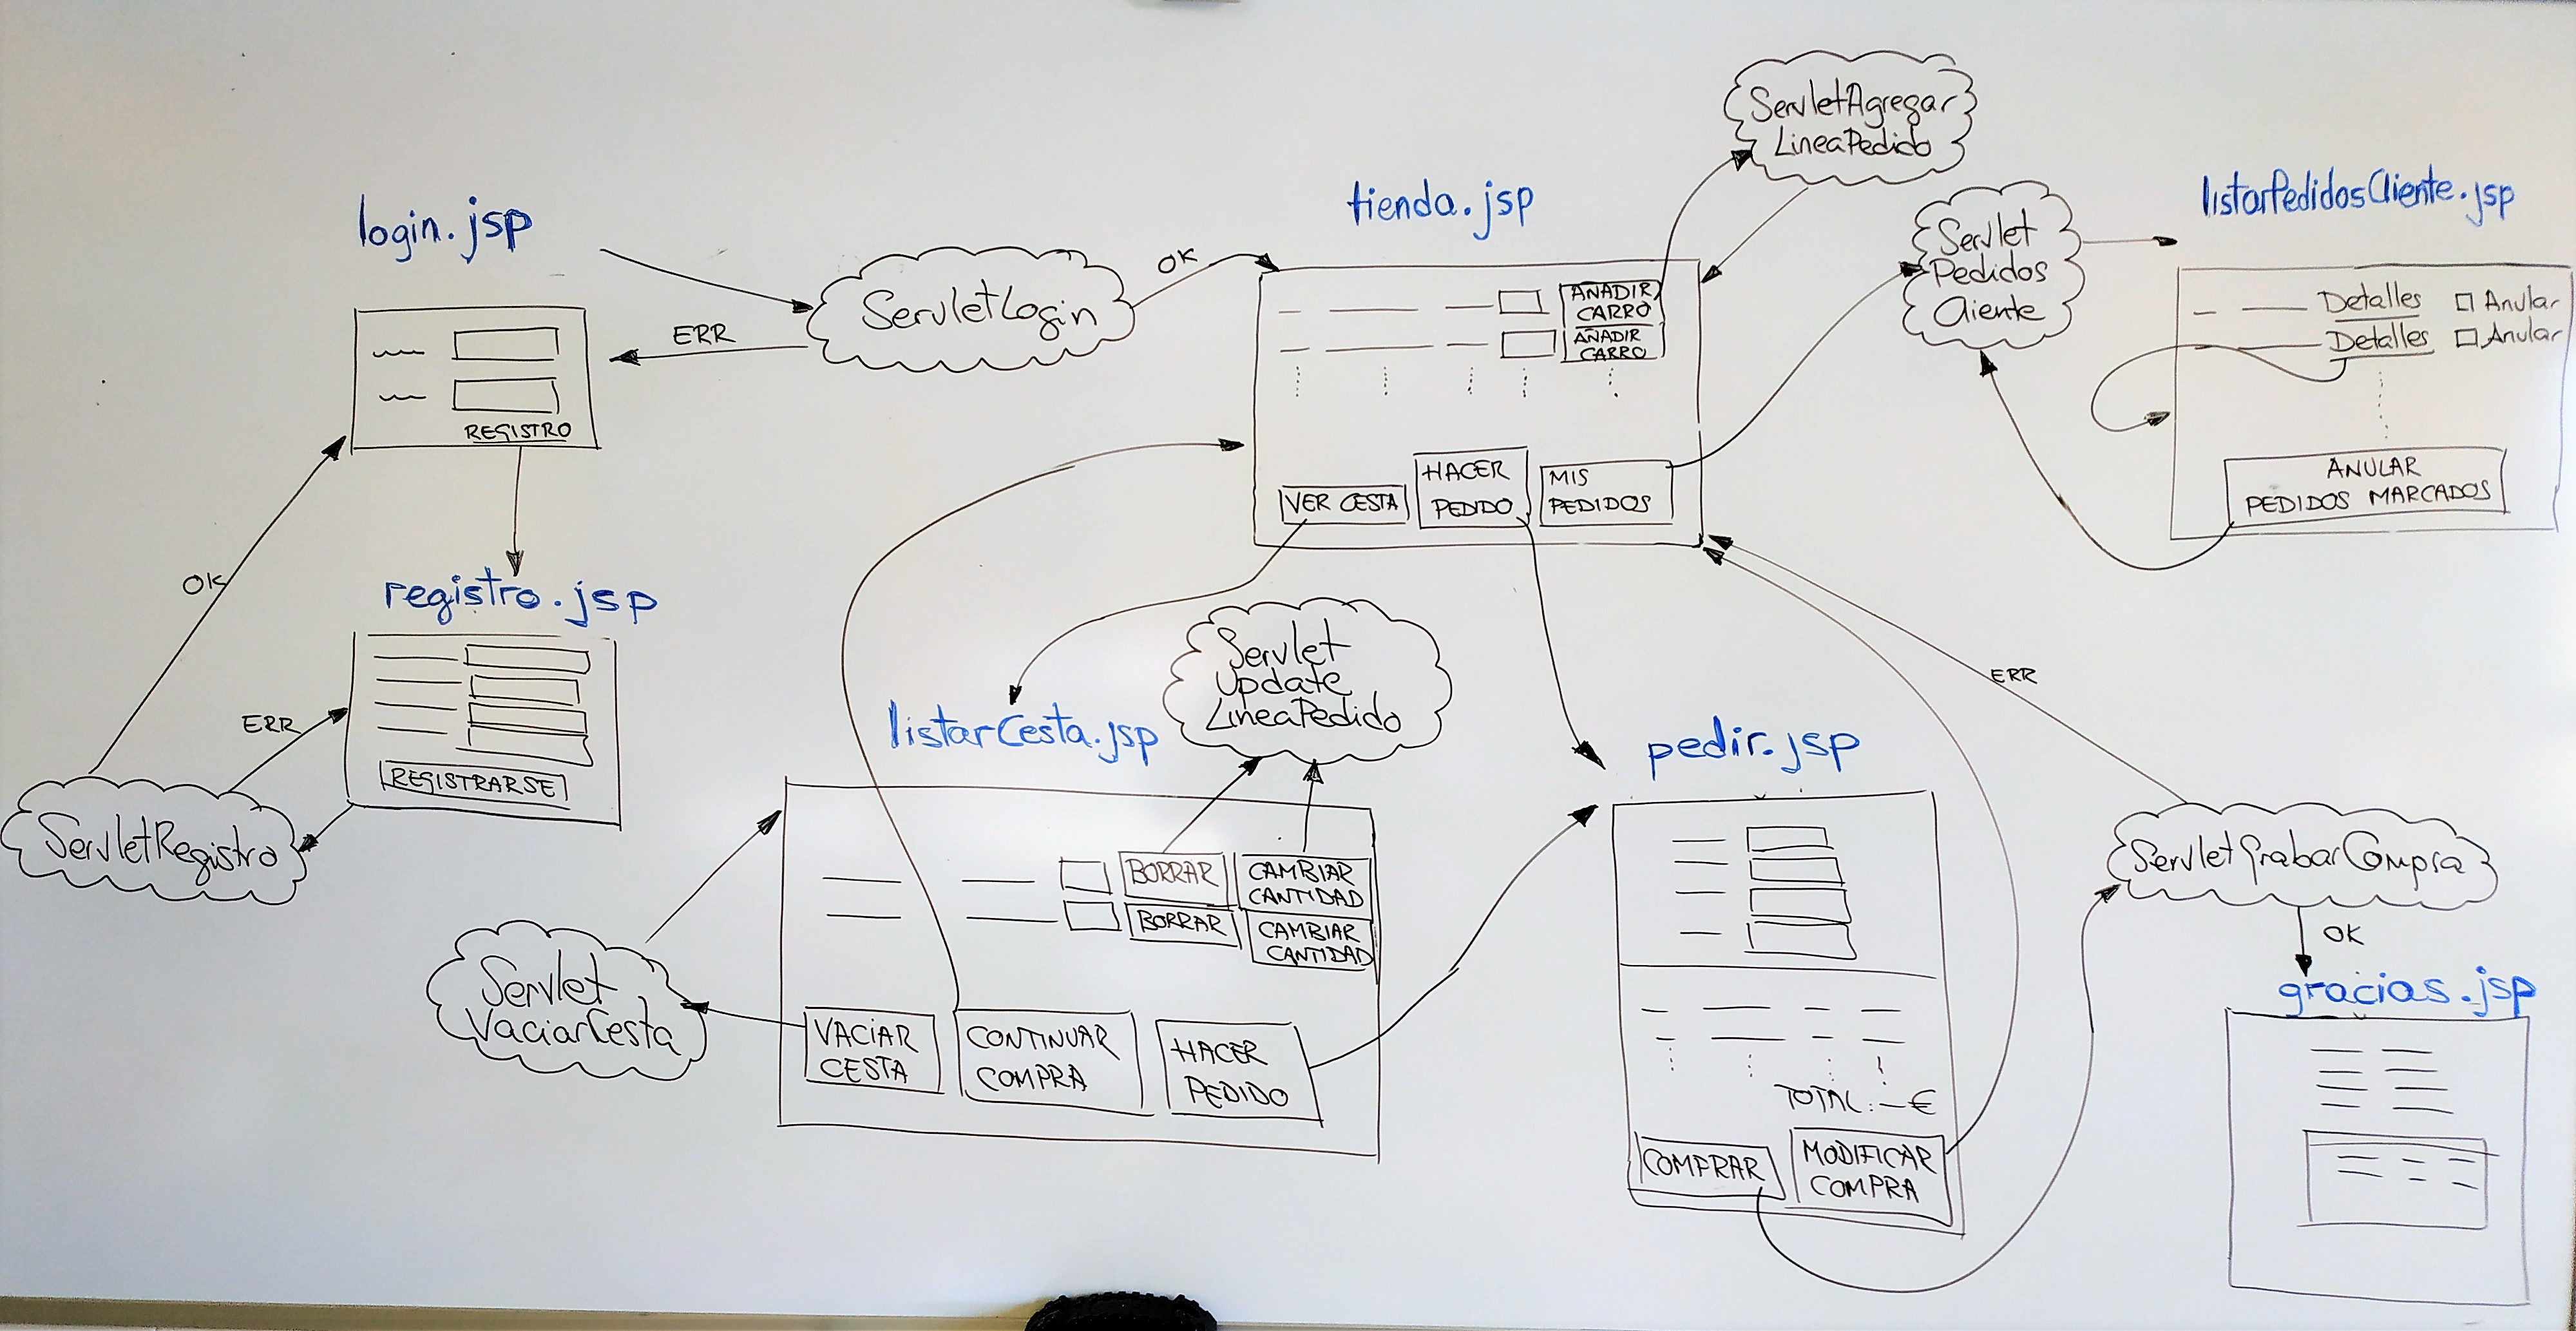 login.jsp
REGISTRO
OK
ERR
registro.jsp
REGISTRARSE
ERR
OK
ServletRegistro
ServletLogin
tienda.jsp
AÑADIR
CARRO
AÑADIR
CARRO
VER CESTA
HACER
PEDIDO
MIS
PEDIDOS
ServletAgregar
LineaPedido
Servlet
Pedidos
Cliente
listarPedidosCliente.jsp
Detalles
Anular
Detalles
Anular
ANULAR
PEDIDOS MARCADOS
listarCesta.jsp
Servlet
Update
LineaPedido
BORRAR
CAMBIAR
CANTIDAD
BORRAR
CAMBIAR
CANTIDAD
VACIAR
CESTA
CONTINUAR
COMPRA
HACER
PEDIDO
Servlet
VaciarCesta
pedir.jsp
TOTAL: — €
COMPRAR
MODIFICAR
COMPRA
ERR
ServletGrabarCompra
OK
gracias.jsp